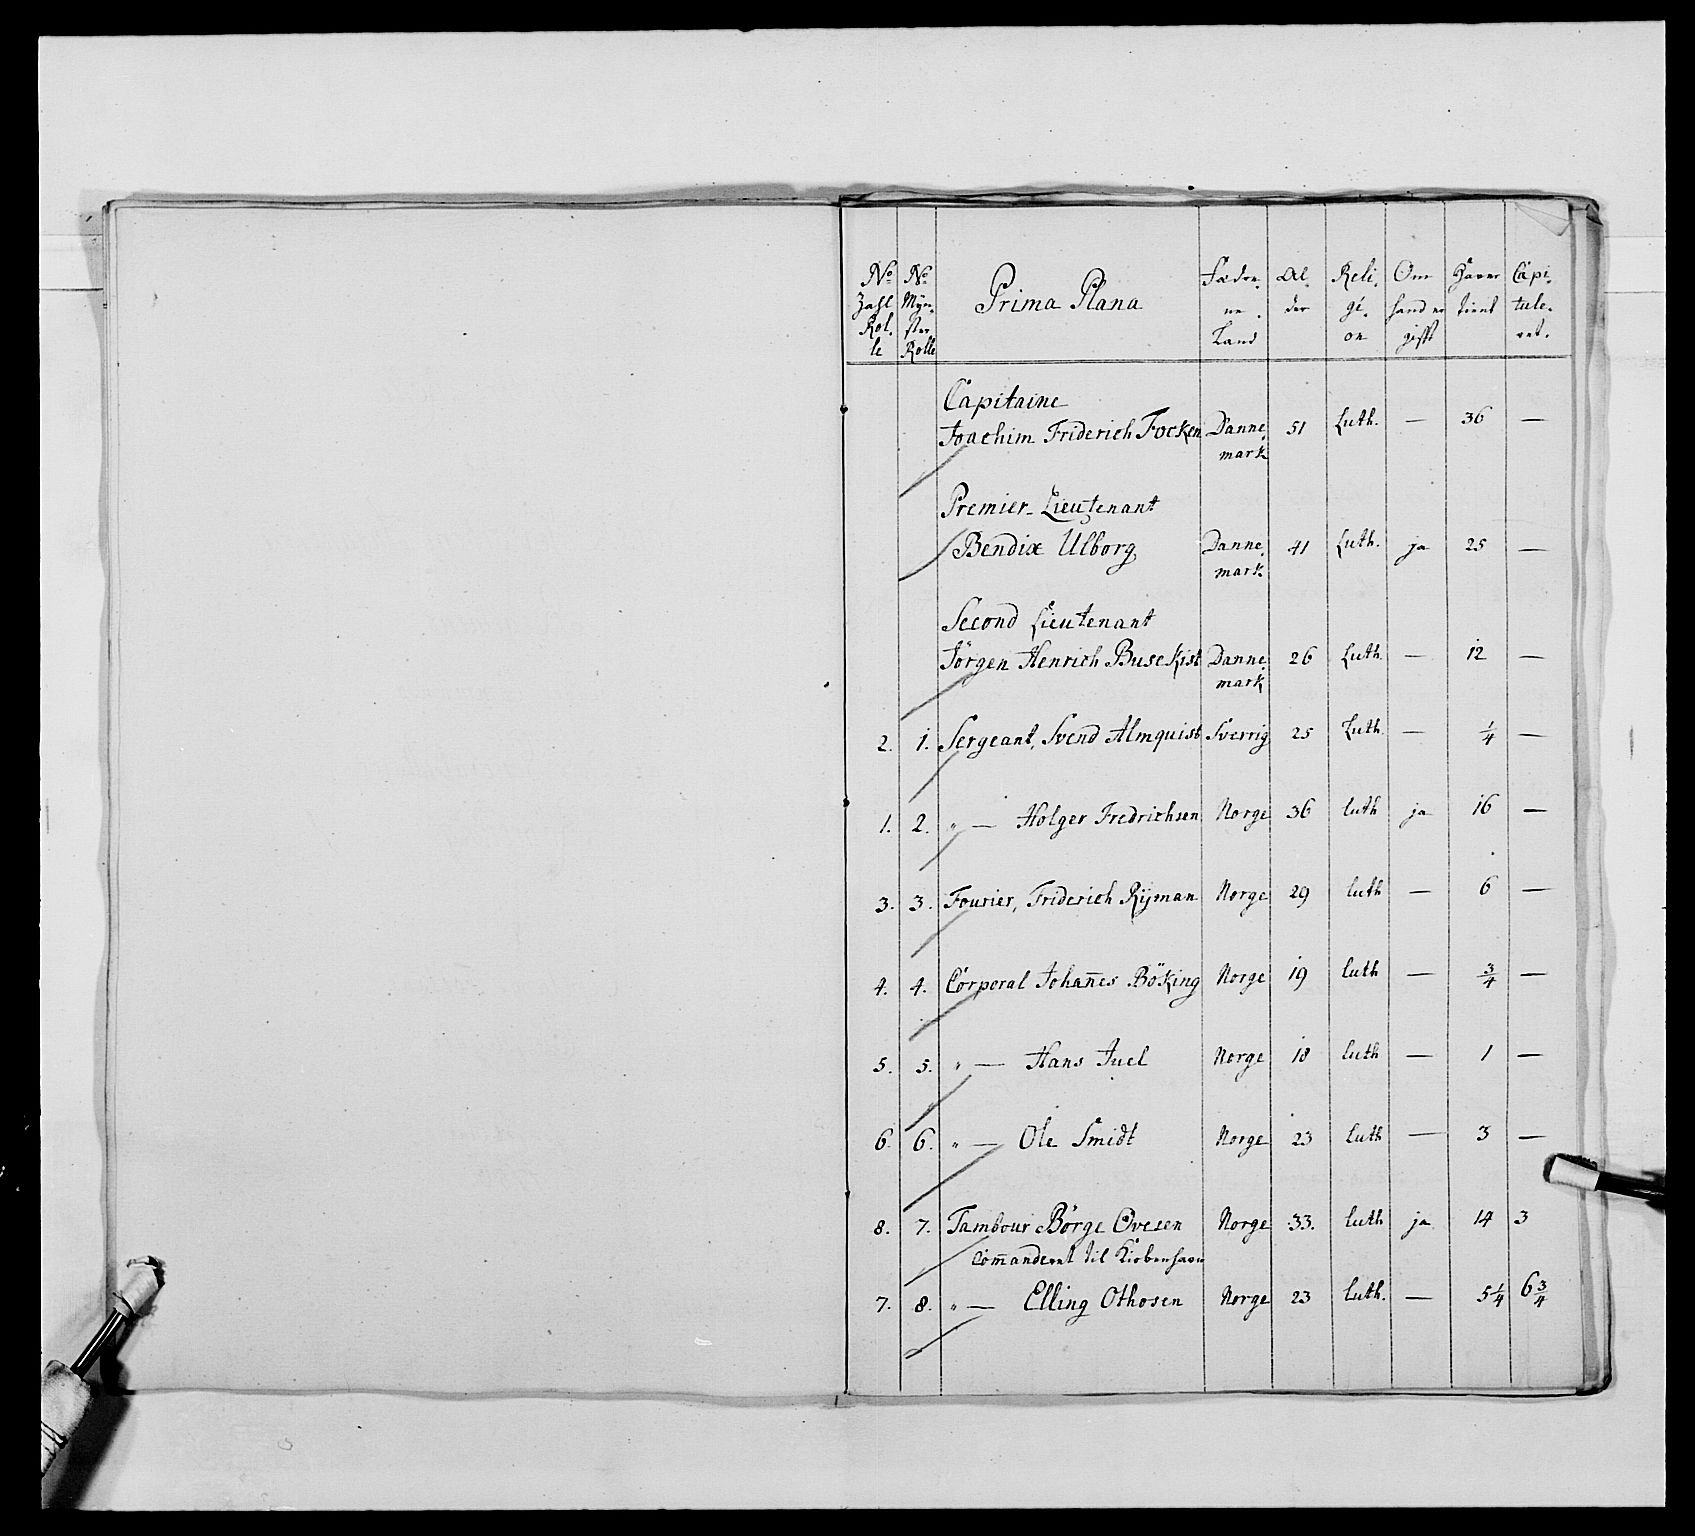 No Zahl Rolle | No Mynster Rolle | Prima Plana | Fæderne Land | Alder | Religion | Om hand er gifft | Haver tient | Capituleret.
Capitaine
Joachim Friderich Focken Dannemark 51 Luth. — 36 —
Premier-Lieutenant
Bendix Ulborg Dannemark 41 Luth. ja 25 —
Second Lieutenant
Jörgen Henrich Buseckist Dannemark 26 Luth. — 12 —
2. 1. Sergeant, Svend Almquist Sverrig 25 Luth. — 1/4 —
1. 2. " — Holger Fredrichsen Norge 36 luth ja 16 —
3. 3. Fourier, Friderich Rijman Norge 29 luth — 6 —
4. 4. Corporal Johan̄es Böking Norge 19 luth — 3/4 —
5. 5. " — Hans Juel Norge 18 luth — 1 —
6. 6. " — Ole Smidt Norge 23 luth — 3 —
8. 7. Tambour Börge Ovesen Norge 33. luth ja 14 3
Com̄anderet til Kiobenhavn
7. 8. " — Elling Othosen Norge 23 luth. — 5 1/4 6 3/4